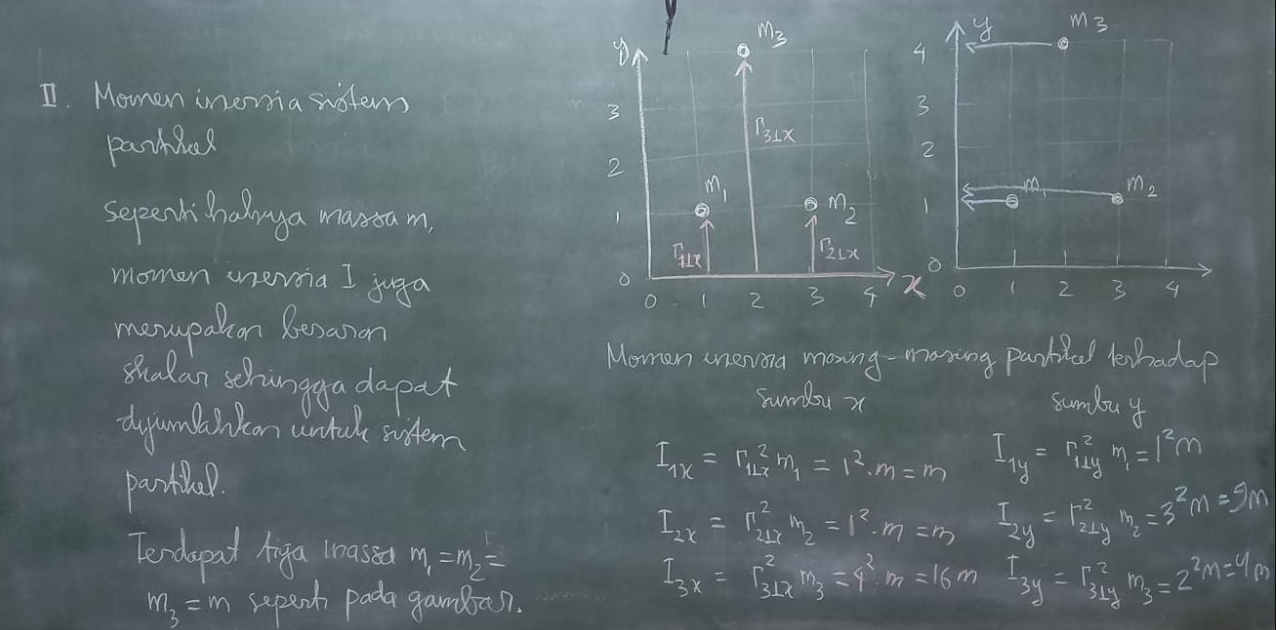 II. Momen inersia sistem
partikel
seperti halnya massa m,
momen inersia I juga
merupakan besaran
skalar sehingga dapat
dijumlahkan untuk sistem
partikel.
Terdapat tiga massa m₁ = m₂ =
m₃ = m seperti pada gambar.
y
m₃
3
r₃⊥x
2
m₁
m₂
1
r₁⊥x
r₂⊥x
0
x
0 1 2 3 4
y
m₃
4
3
2
m₁
m₂
1
0
0 1 2 3 4
Momen inersia masing-masing partikel terhadap
sumbu x
sumbu y
I₁x = r₁⊥x² m₁ = 1².m = m
I₁y = r₁⊥y² m₁ = 1²m
I₂x = r₂⊥x² m₂ = 1².m = m
I₂y = r₂⊥y² m₂ = 3²m = 9m
I₃x = r₃⊥x² m₃ = 4².m = 16m
I₃y = r₃⊥y² m₃ = 2²m = 4m